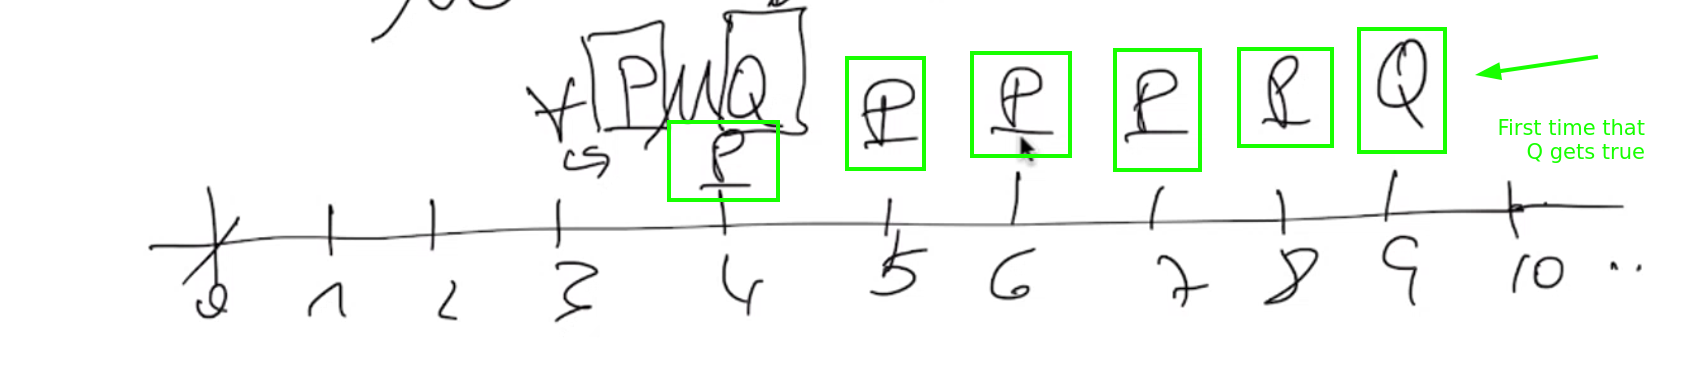 P U Q P P P P Q
P
First time that
Q gets true
0 1 2 3 4 5 6 7 8 9 10 ..